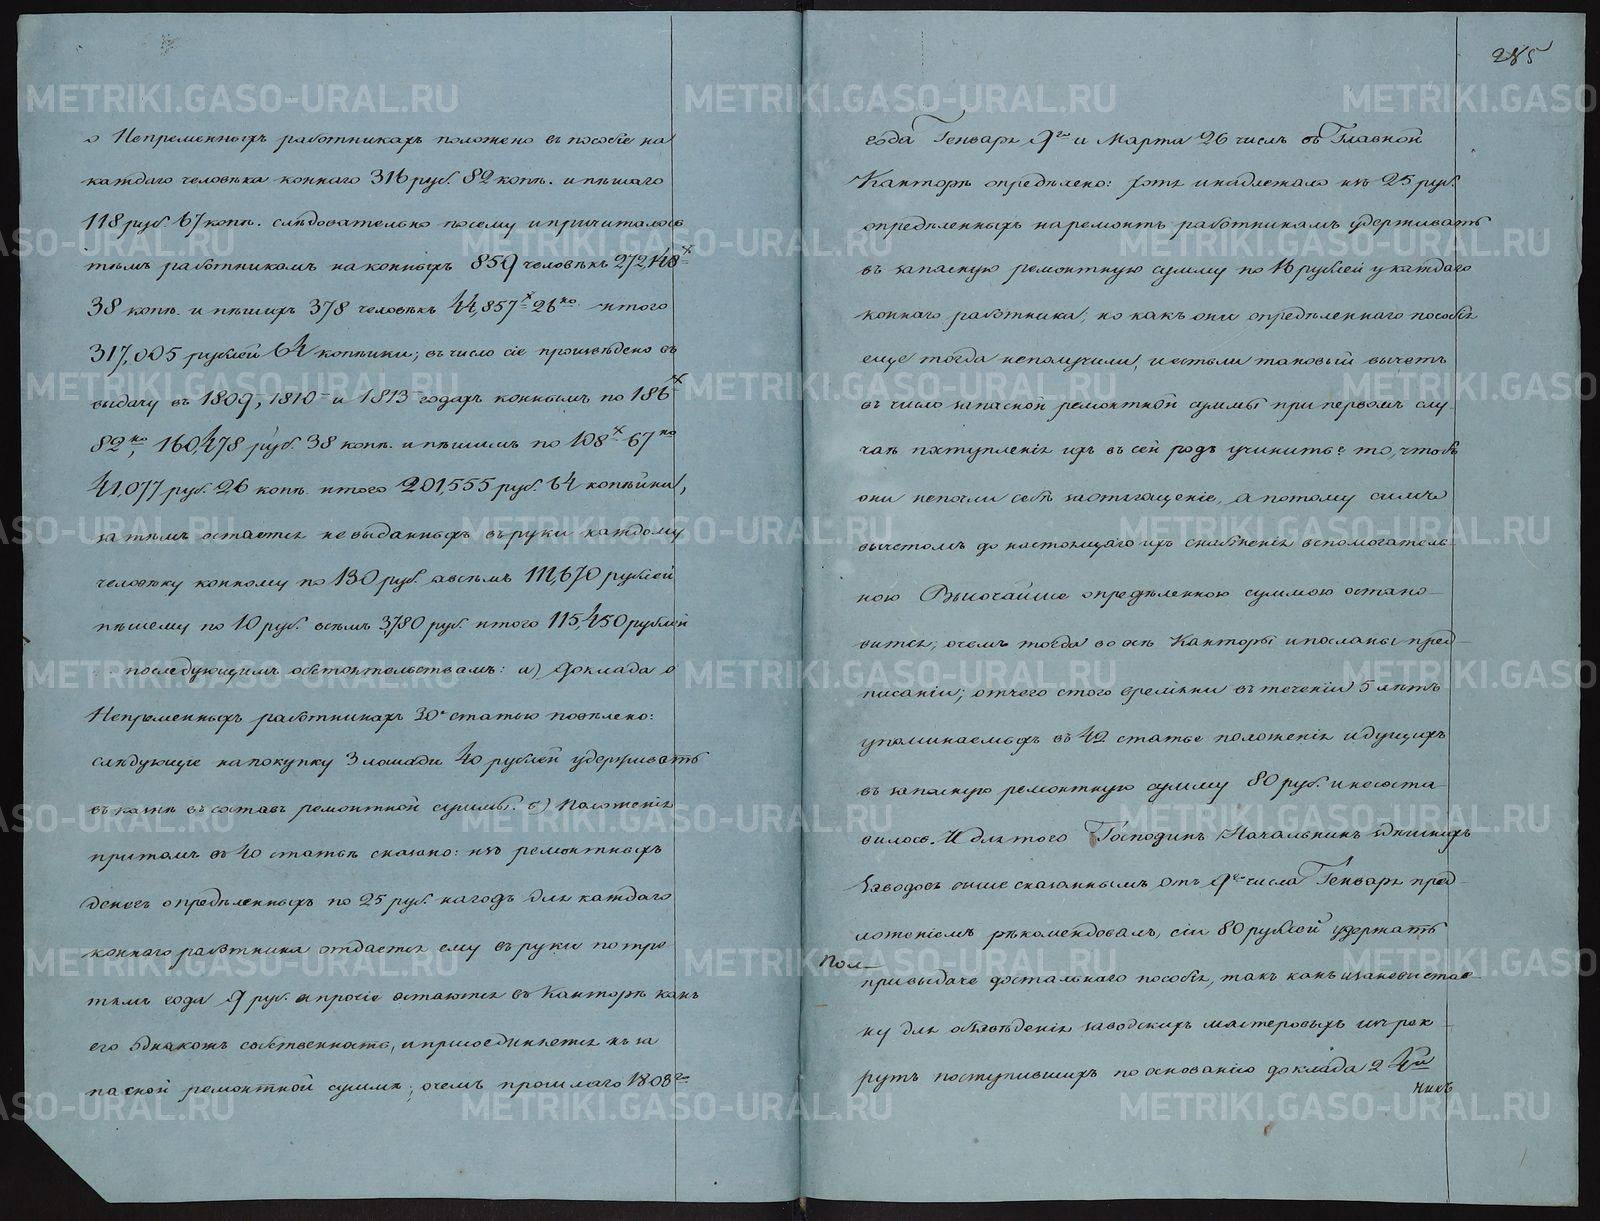 о Непременныхъ работникахъ положено въ пособіе на
каждаго человѣка коннаго 316 руб. 82 коп. и пѣшаго
118 руб. 67 коп. слѣдовательно посему и причиталось
тѣмъ работникамъ на конныхъ 859 человѣкъ 272,148
38 коп. и пѣшихъ 378 человѣкъ 44,857 26 ко итого
317,005 рублей 64 копѣйки; въ число сіе произведено въ
выдачу въ 1809, 1810 и 1813 годахъ коннымъ по 186
82 ко, 160,478 руб. 38 коп. и пѣшимъ по 108 67 ко
41,077 руб. 26 коп. итого 201,555 руб. 64 копѣйки,
за тѣмъ остается не выданныхъ въ руки каждому
человѣку конному по 130 руб. а всѣмъ 111,670 рублей
пѣшему по 10 руб. всѣмъ 3,780 руб. итого 115,450 рублей
последующимъ обстоятельствамъ: а) Доклада о
Непременныхъ работникахъ 30 статью повѣлено:
слѣдующіе на покупку 3 лошади 40 рублей удерживать
въ казнѣ въ составъ ремонтной суммы. б) Положенія
притомъ въ 40 статьѣ сказано: изъ ремонтныхъ
денегъ опредѣленныхъ по 25 руб. на годъ для каждаго
коннаго работника отдается ему въ руки по тре
тямъ года 9 руб. а прочіе остаются въ Канторѣ какъ
его однакожъ собственность, и присоединяется къ за
пасной ремонтной суммѣ; о чемъ прошлаго 1808 го
285
года Генваря 9 го и Марта 26 числъ въ Главной
Канторѣ опредѣлено: хотя и надлежало изъ 25 руб.
опредѣленныхъ на ремонтъ работникамъ удерживать
въ запасную ремонтную сумму по 16 рублей у каждаго
коннаго работника, но какъ они опредѣленнаго пособія
еще тогда неполучили, и естьли таковый вычетъ
въ число запасной ремонтной суммы при первомъ слу
чаѣ поступленія ихъ въ сей родъ учинить: то, чтобъ
они непочли себѣ за отягощеніе, а потому симъ
вычетомъ до настоящаго ихъ снабженія вспомогатель
ною Высочайше опредѣленною суммою остано
вится, о чемъ тогда во всѣ Канторы и посланы пред
писаніи; отчего с того времѣни въ теченіи 5 лѣтъ
упоминаемыхъ въ 42 статье положенія идущихъ
въ запасную ремонтную сумму 80 руб. и несоста
вилось. И для того Господинъ Начальникъ здешнихъ
Заводовъ выше сказаннымъ отъ 9 го числа Генваря пред
ложеніемъ рѣкомендовалъ, сіи 80 рублей удержать
Пол
при выдаче достальнаго пособія, такъ какъ и за
ну для обзавѣденія заводскихъ мастеровыхъ изъ рек
рутъ поступившихъ по основанію доклада 2 й
чикъ